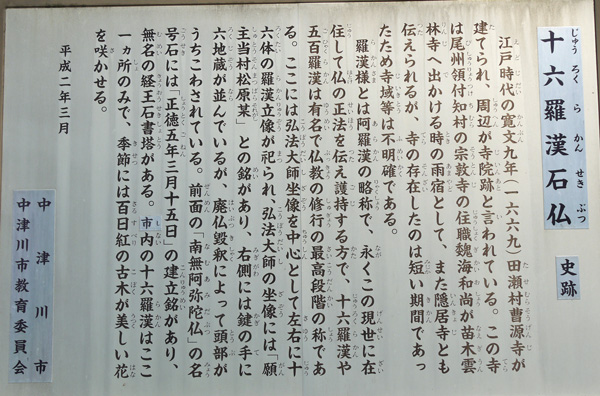 十六羅漢石仏
じゅうろくらかんせきぶつ
史跡
江戸時代の寛文九年(一六六九)田瀬村曹源寺が
建てられ、周辺が寺院跡と言われている。この寺
は尾州領付知村の宗敦寺の住職魏海和尚が苗木雲
林寺へ出かける時の雨宿として、また隠居寺とも
伝えられるが、寺の存在したのは短い期間であっ
たため寺域等は不明確である。
羅漢様とは阿羅漢の略称で、永くこの現世に在
住して仏の正法を伝え護持する方で、十六羅漢や
五百羅漢は有名で仏教の修行の最高段階の称であ
る。ここには弘法大師坐像を中心として左右に十
六体の羅漢立像が祀られ、弘法大師の坐像には「願
主当村松原某」との銘があり、右側には鍵の手に
六地蔵が並んでいるが、廃仏毀釈によって頭部が
うちこわされている。前面の「南無阿弥陀仏」の名
号石には「正徳五年三月十五日」の建立銘があり、
無名の経王石書塔がある。市内の十六羅漢はここ
一ヵ所のみで、季節には百日紅の古木が美しい花
を咲かせる。
平成二年三月
中津川市
中津川市教育委員会